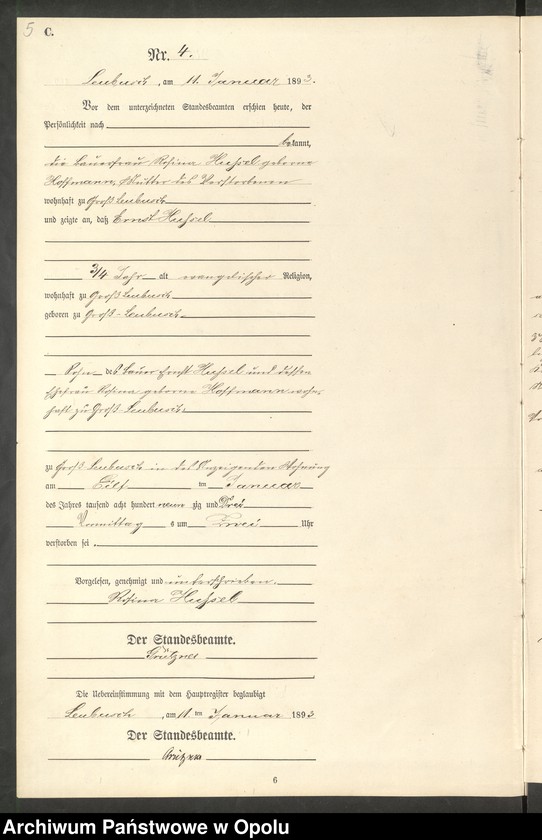 5 C.
Nr. 4.
Leubusch, am 11. Januar 1893.
Vor dem unterzeichneten Standesbeamten erschien heute, der
Persönlichkeit nach
bekannt,
die Bauerfrau Rosina geborne
Hoffmann, Mutter des Verstorbenen
wohnhaft zu Groß Leubusch
und zeigte an, daß Ernst
3/4 Jahr alt evangelischer Religion,
wohnhaft zu Groß Leubusch
geboren zu Groß-Leubusch
Sohn des Bauer Ernst und dessen
Ehefrau Rosina geborne Hoffmann wohn-
haft zu Groß-Leubusch
zu Groß-Leubusch in der Anzeigenden Wohnung
am Eilf ten Januar
des Jahres tausend acht hundert neun zig und Drei
Vormittag s um Zwei Uhr
verstorben sei.
Vorgelesen, genehmigt und unterschrieben.
Rosina
Der Standesbeamte.
Grützner
Die Uebereinstimmung mit dem Hauptregister beglaubigt
Leubusch, am 11. ten Januar 1893
Der Standesbeamte.
Grützner
6
Archiwum Państwowe w Opolu